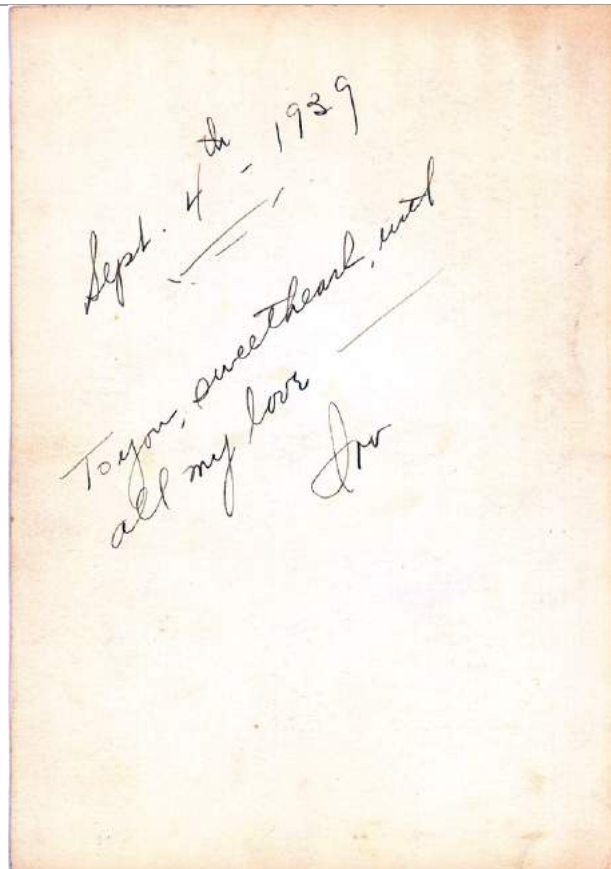 Sept. 4th - 1939
To you, sweetheart, with
all my love —
Irv